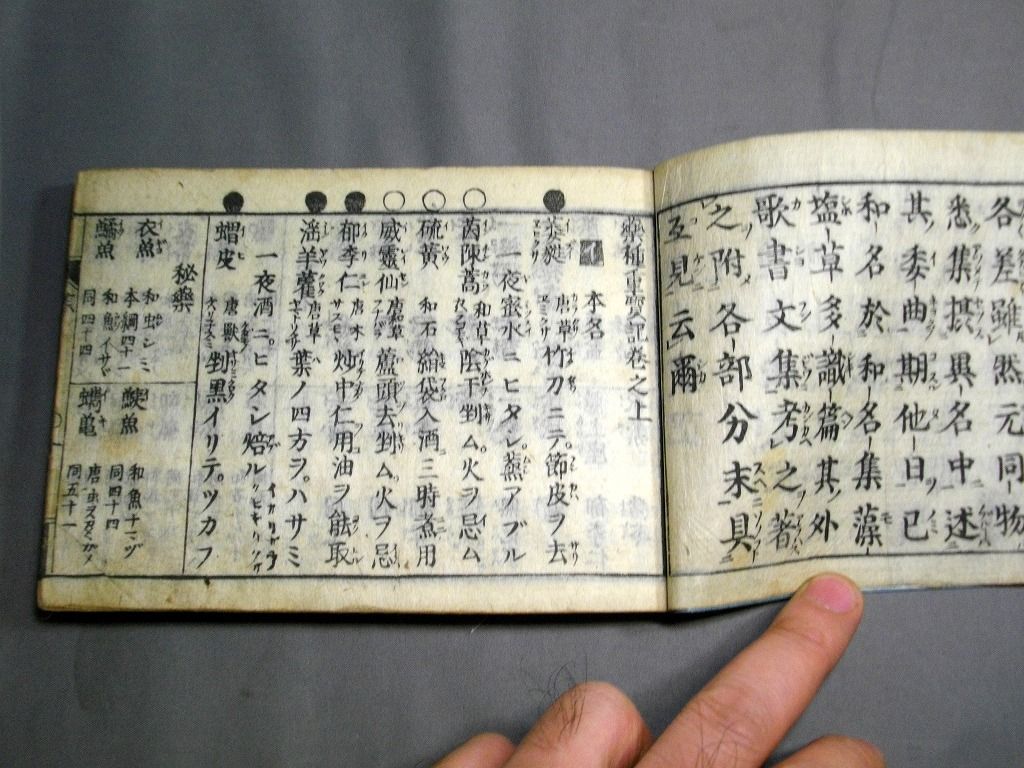 各差雖然元同物
悉集摂異名中述
其委曲期他日已
和名於和名集藻
塩草多識篇其外
歌書文集考之著
之附各部分末具
互見云爾
薬種重宝記巻之上
本名
唐草竹刀ニテ節皮ヲ去
一夜蜜水ニヒタシ蒸アブル
茵陳蒿 和草 陰干剉ム火ヲ忌ム
硫黄 和石 絹袋入酒三時煮用
威靈仙 唐草 蘆頭去剉ム火ヲ忌
郁李仁 唐木 炒中仁用油ヲ能取
淫羊藿 唐草 葉ノ四方ヲハサミ
一夜酒ニヒタシ焙ル
蝟皮 唐獸 剉黒イリテツカフ
秘藥
衣魚 和虫シミ 本綱四十一
和魚イサゴ 同四十四
鮧魚 和魚ナマヅ 同四十四
蠵亀 同五十一